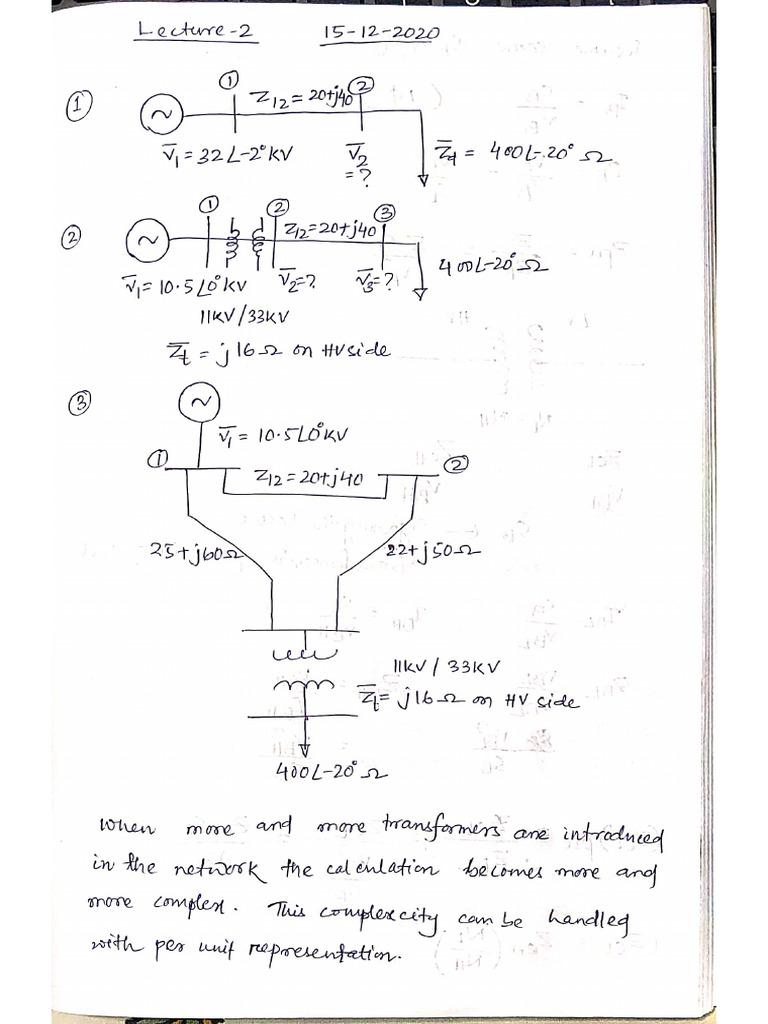 Lecture-2 15-12-2020
① ① Z12 = 20+j40 ②
~
V̄1 = 32∠-2° KV V̄2 = ? Z̄4 = 400∠-20° Ω
② ① ② Z12 = 20+j40 ③
~
V̄1 = 10.5∠0° KV V̄2 = ? V̄3 = ? 400∠-20° Ω
11KV/33KV
Z̄t = j16Ω on HV side
③ ~
V̄1 = 10.5∠0° KV
① Z12 = 20+j40 ②
25+j60Ω 22+j50Ω
11KV / 33KV
Z̄t = j16Ω on HV side
400∠-20° Ω
When more and more transformers are introduced
in the network the calculation becomes more and
more complex. This complexcity can be handled
with per unit representation.